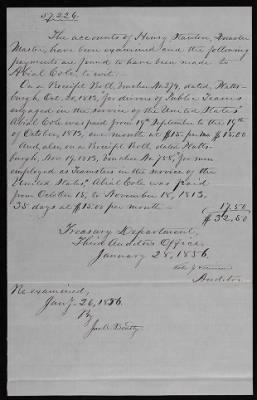 57.226.
The accounts of Henry Stanton, Quarter
Master, have been examined and the following
payments are found to have been made to
Abial Cole, to wit:
On a Receipt Roll, Voucher No. 279, dated, Platts-
burgh, Oct. 20, 1813, "for drivers of Public Teams
engaged in the service of the United States"
Abial Cole was paid from 19th September to the 19th
of October, 1813, one month at $15. per mo $15.00
And, also, on a Receipt Roll, dated Platts-
burgh, Nov 19, 1813, Voucher No. 758, "for men
employed as Teamsters in the service of the
United States", Abial Cole was paid
from October 15, to November 18, 1813,
35 days at $15.00 per month — 17.50
$32.50
Treasury Department,
Third Auditor's Office,
January 28, 1856.
Auditor.
Re examined,
Jany. 26, 1856.
By